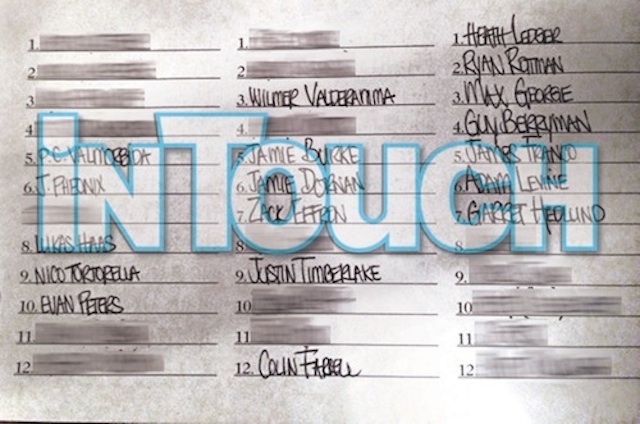 1.
2
3
4
5. P.C. VALMORBIDA
6. J. PHEONIX
8. LUKAS HAAS
9. NICO TORTORELLA
10. EVAN PETERS
11
12.
1.
2
3. WILMER VALDERAMMA
4.
5. JAMIE BURKE
6. JAMIE DORNAN
7. ZACK EFFRON
8
9. JUSTIN TIMBERLAKE
10.
11
12. COLIN FARRELL
1. HEATH LEDGER
2. RYAN ROTTMAN
3. MAX GEORGE
4. GUY BERRYMAN
5. JAMES FRANCO
6. ADAM LEVINE
7. GARRET HEDLUND
8
9.
10
11
12
INTOUCH